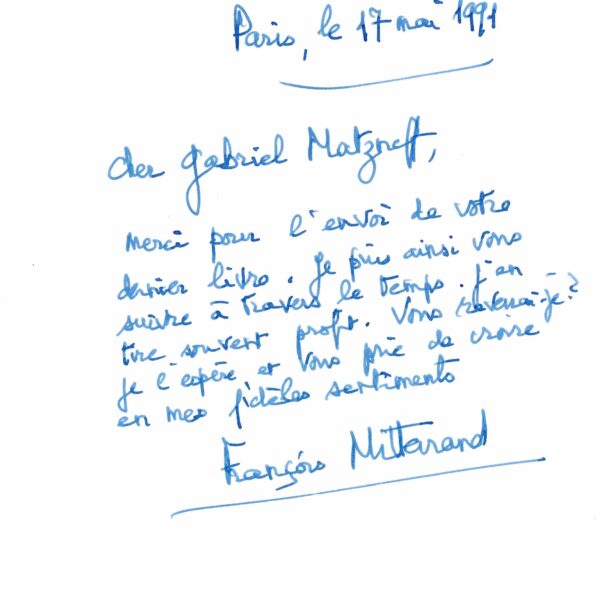 Paris, le 17 mai 1991
Cher Gabriel Matzneff,
Merci pour l'envoi de votre
dernier livre. Je puis ainsi vous
suivre à travers le temps. J'en
tire souvent profit. Vous reverrai-je?
Je l'espère et vous prie de croire
en mes fidèles sentiments
François Mitterrand